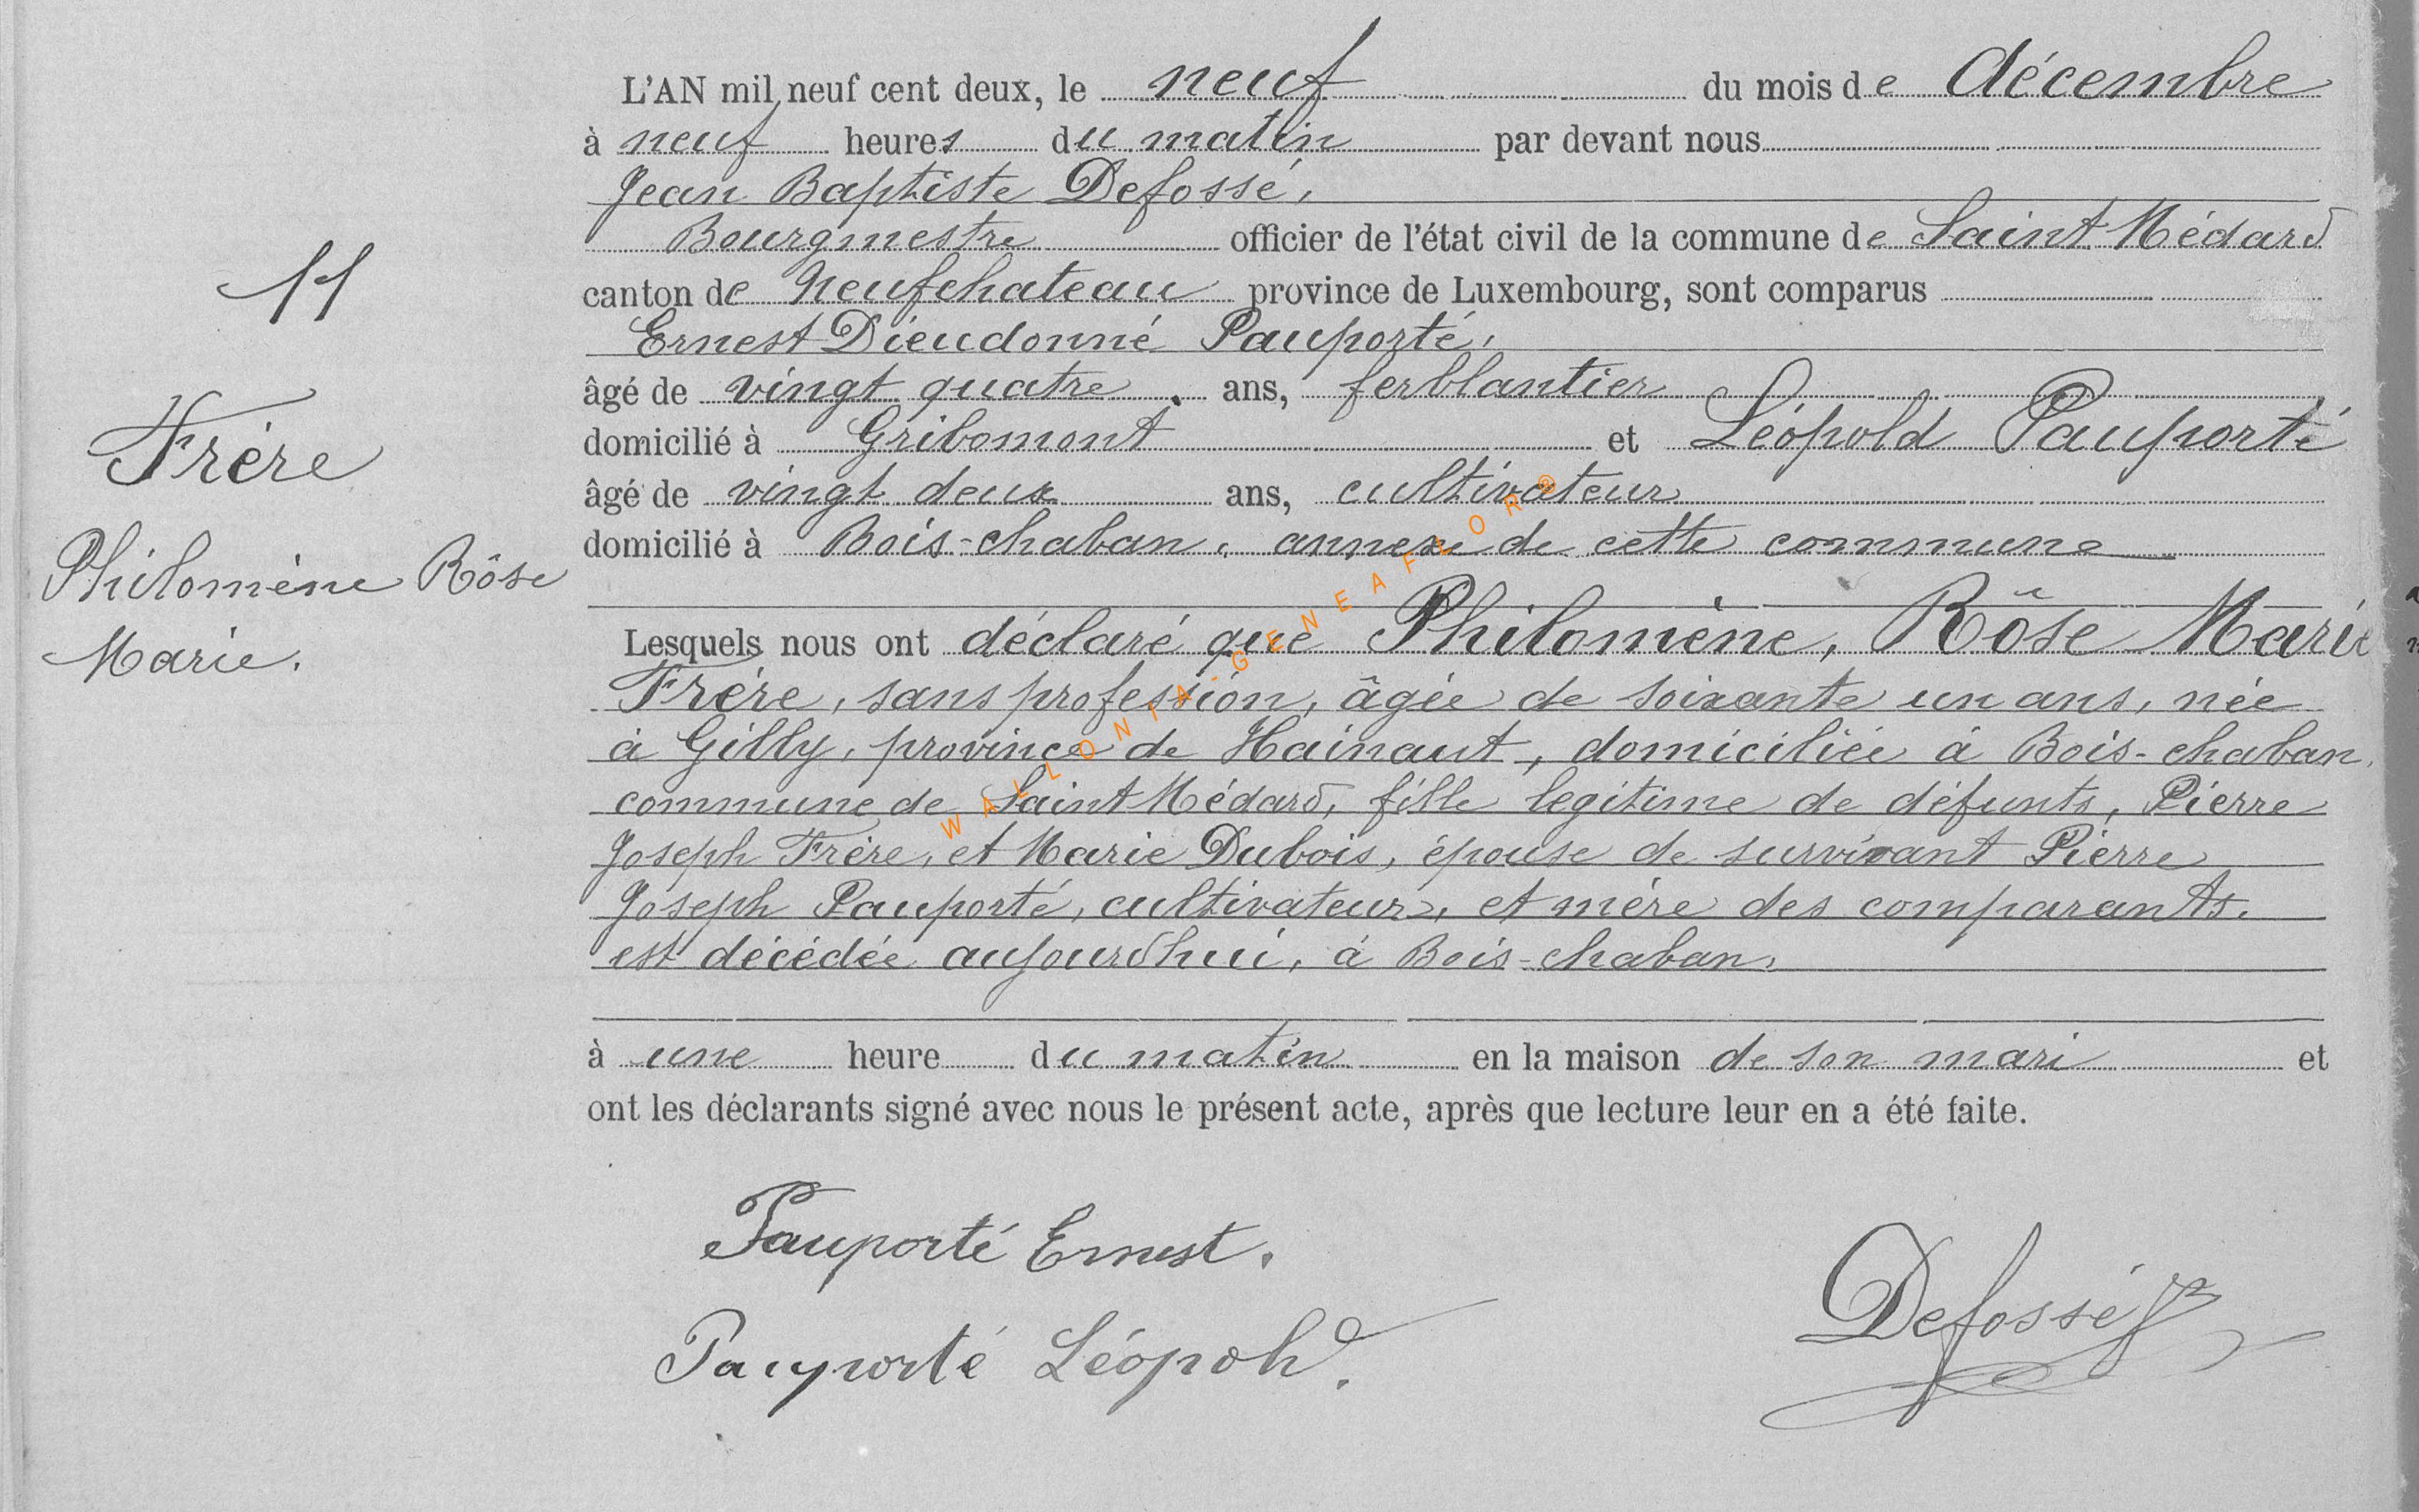 L'AN mil neuf cent deux, le neuf du mois de décembre
à neuf heures du matin par devant nous
Jean Baptiste Defossé,
Bourgmestre officier de l'état civil de la commune de Saint Médard
canton de Neufchateau province de Luxembourg, sont comparus
Ernest Dieudonné Pauporté,
âgé de vingt quatre ans, ferblantier
domicilié à Gribomont et Léopold Pauporté
âgé de vingt deux ans, cultivateur
domicilié à Bois-chaban, annexe de cette commune
Lesquels nous ont déclaré que Philomène, Rôse Marie
Frère, sans profession, âgée de soixante un ans, née
à Gilly, province de Hainaut, domiciliée à Bois-chaban,
commune de Saint Médard, fille legitime de défunts, Pierre
Joseph Frère, et Marie Dubois, épouse de survivant Pierre
Joseph Pauporté, cultivateur, et mère des comparants.
est décédée aujourdhui, à Bois-chaban,
à une heure du matin en la maison de son mari et
ont les déclarants signé avec nous le présent acte, après que lecture leur en a été faite.
11
Frère
Philomène Rôse
Marie.
Pauporté Ernest.
Pauporté Léopold.
Defossé
WALLONIA-GENEAFLOR®